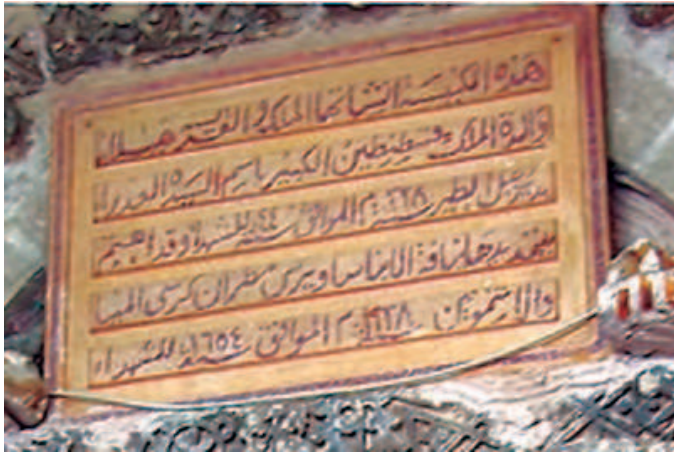 هذه الكنيسة انشأتها الملكة القديسة هيلانة
والدة الملك قسطنطين الكبير باسم السيدة العذراء
بجبل الطير سنة ٣٢٨م الموافق سنة ٤٤ للشهداء وقد اهتم
بتجديدها نيافة الانبا ساويرس مطران كرسى المنيا
والاشمونين سنة ١٩٣٨م الموافق سنة ١٦٥٤ للشهداء